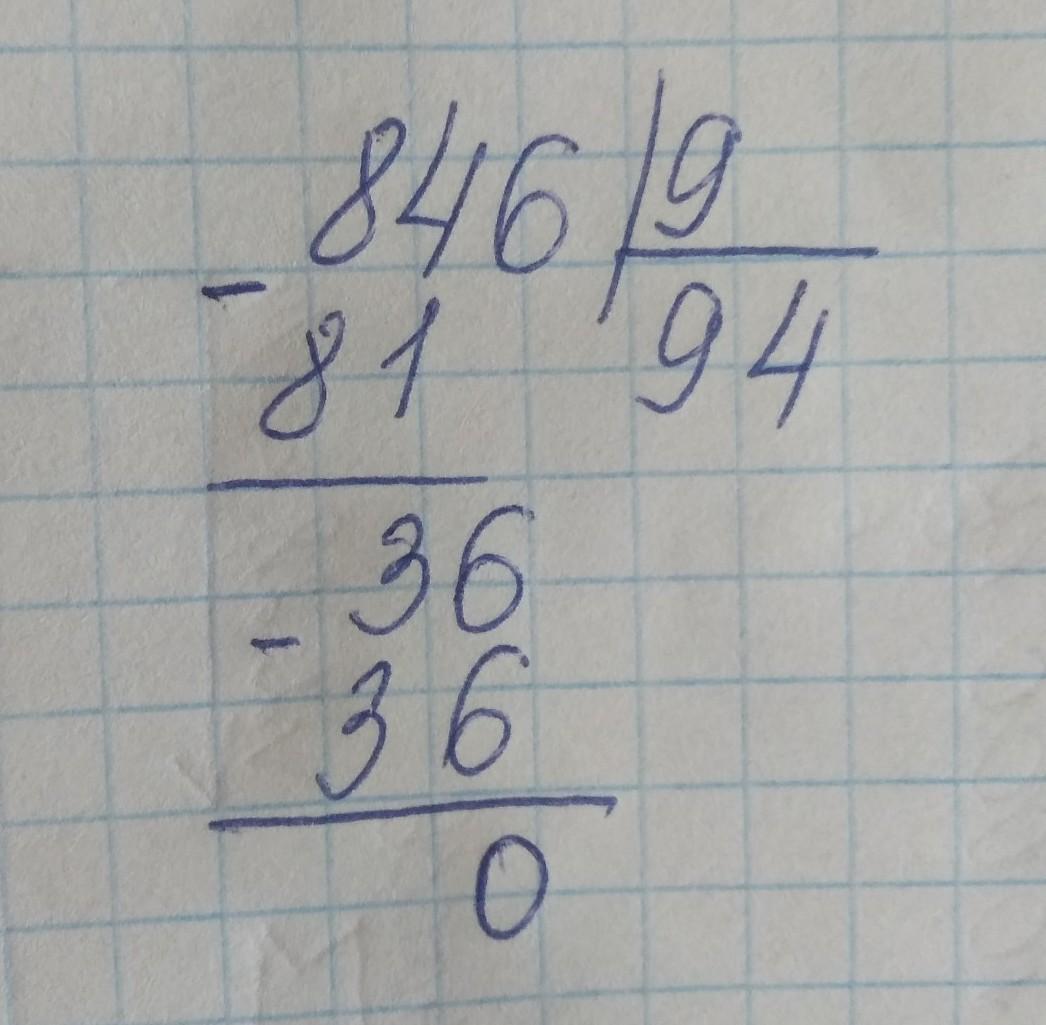 846 | 9
- 81 94
36
- 36
0